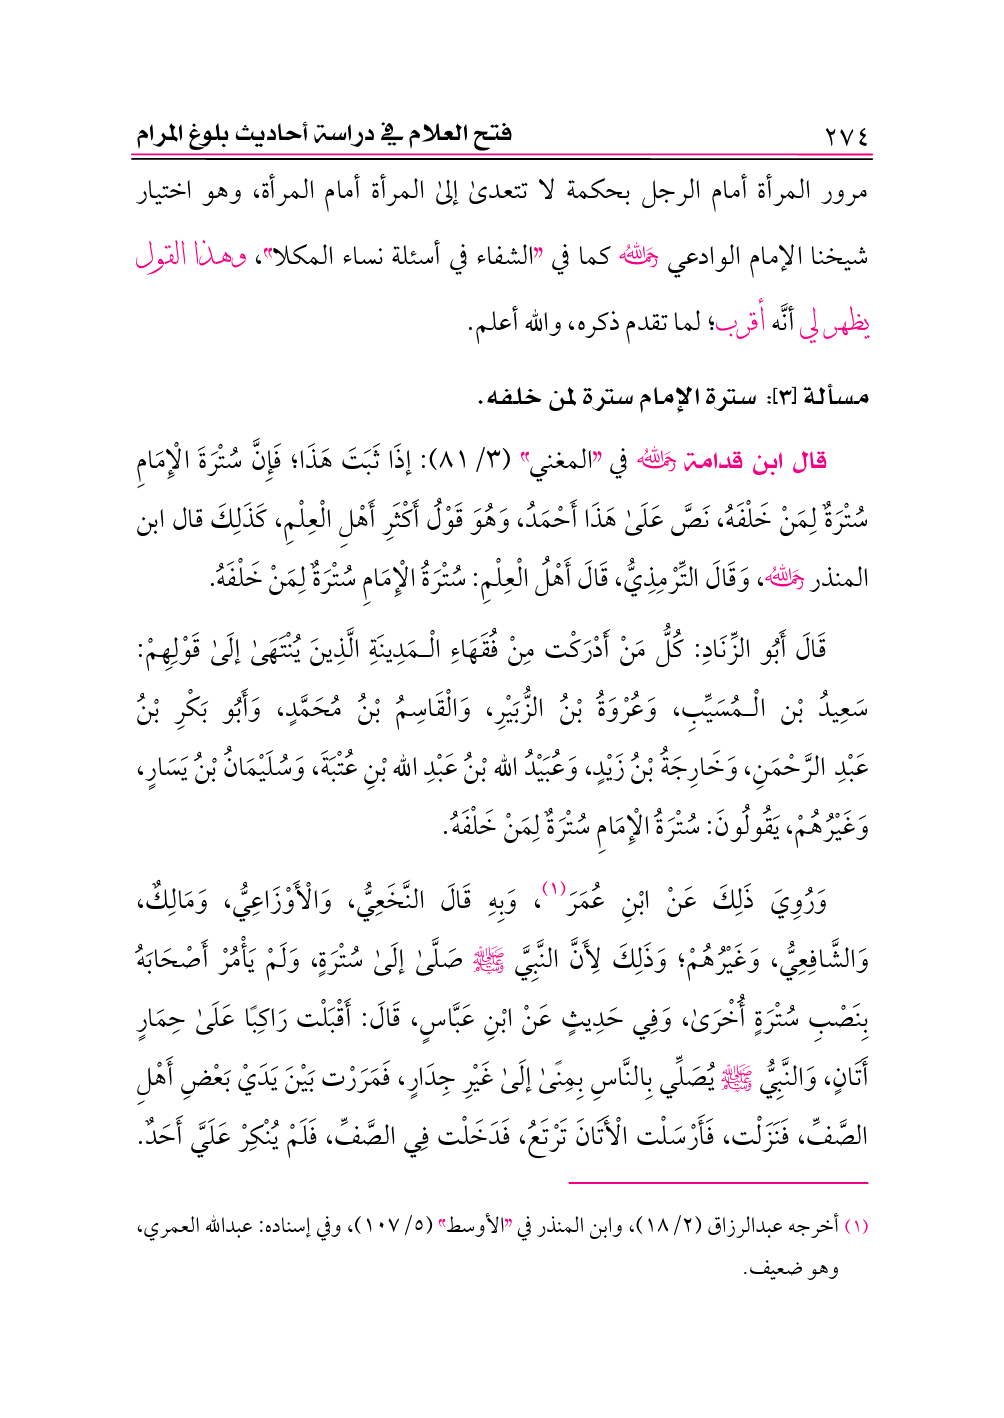 ٢٧٤ فتح العلام في دراسة أحاديث بلوغ المرام
مرور المرأة أمام الرجل بحكمة لا تتعدىٰ إلىٰ المرأة أمام المرأة، وهو اختيار
شيخنا الإمام الوادعي رَحِمَهُ اللهُ كما في "الشفاء في أسئلة نساء المكلا"، وهذا القول
يظهر لي أنَّه أقرب؛ لما تقدم ذكره، والله أعلم.
مسألة [٣]: سترة الإمام سترة لمن خلفه.
قال ابن قدامة رَحِمَهُ اللهُ في "المغني" (٣/ ٨١): إذَا ثَبَتَ هَذَا؛ فَإِنَّ سُتْرَةَ الْإِمَامِ
سُتْرَةٌ لِمَنْ خَلْفَهُ، نَصَّ عَلَىٰ هَذَا أَحْمَدُ، وَهُوَ قَوْلُ أَكْثَرِ أَهْلِ الْعِلْمِ، كَذَلِكَ قال ابن
المنذر رَحِمَهُ اللهُ، وَقَالَ التِّرْمِذِيُّ، قَالَ أَهْلُ الْعِلْمِ: سُتْرَةُ الْإِمَامِ سُتْرَةٌ لِمَنْ خَلْفَهُ.
قَالَ أَبُو الزِّنَادِ: كُلُّ مَنْ أَدْرَكْت مِنْ فُقَهَاءِ الْـمَدِينَةِ الَّذِينَ يُنْتَهَىٰ إلَىٰ قَوْلِهِمْ:
سَعِيدُ بْن الْـمُسَيِّبِ، وَعُرْوَةُ بْنُ الزُّبَيْرِ، وَالْقَاسِمُ بْنُ مُحَمَّدٍ، وَأَبُو بَكْرِ بْنُ
عَبْدِ الرَّحْمَنِ، وَخَارِجَةُ بْنُ زَيْدٍ، وَعُبَيْدُ الله بْنُ عَبْدِ الله بْنِ عُتْبَةَ، وَسُلَيْمَانُ بْنُ يَسَارٍ،
وَغَيْرُهُمْ، يَقُولُونَ: سُتْرَةُ الْإِمَامِ سُتْرَةٌ لِمَنْ خَلْفَهُ.
وَرُوِيَ ذَلِكَ عَنْ ابْنِ عُمَرَ(١)، وَبِهِ قَالَ النَّخَعِيُّ، وَالْأَوْزَاعِيُّ، وَمَالِكٌ،
وَالشَّافِعِيُّ، وَغَيْرُهُمْ؛ وَذَلِكَ لِأَنَّ النَّبِيَّ ﷺ صَلَّىٰ إلَىٰ سُتْرَةٍ، وَلَمْ يَأْمُرْ أَصْحَابَهُ
بِنَصْبِ سُتْرَةٍ أُخْرَىٰ، وَفِي حَدِيثٍ عَنْ ابْنِ عَبَّاسٍ، قَالَ: أَقْبَلْت رَاكِبًا عَلَىٰ حِمَارٍ
أَتَانٍ، وَالنَّبِيُّ ﷺ يُصَلِّي بِالنَّاسِ بِمِنًىٰ إلَىٰ غَيْرِ جِدَارٍ، فَمَرَرْت بَيْنَ يَدَيْ بَعْضِ أَهْلِ
الصَّفِّ، فَنَزَلْت، فَأَرْسَلْت الْأَتَانَ تَرْتَعُ، فَدَخَلْت فِي الصَّفِّ، فَلَمْ يُنْكِرْ عَلَيَّ أَحَدٌ.
(١) أخرجه عبدالرزاق (٢/ ١٨)، وابن المنذر في "الأوسط" (٥/ ١٠٧)، وفي إسناده: عبدالله العمري،
وهو ضعيف.